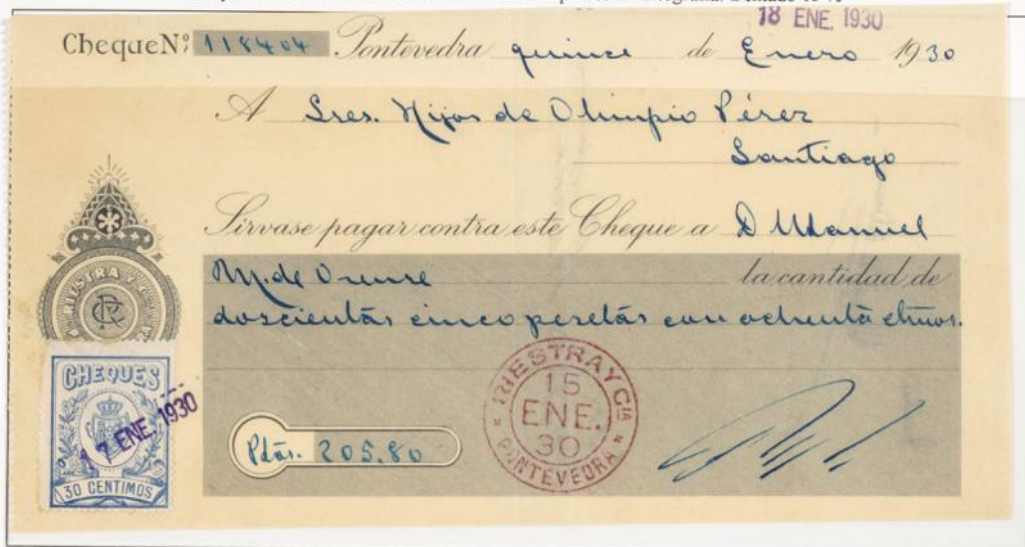 18 ENE. 1930
Cheque Nº 118404 Pontevedra quince de Enero 1930
A Sres. Hijos de Olimpio Pérez
Santiago
Sírvase pagar contra este Cheque a D Manuel
M. de Orense la cantidad de
doscientas cinco pesetas con ochenta ctmos.
RIESTRA Y
CHEQUES
17 ENE. 1930
30 CENTIMOS
Ptas. 205.80
RIESTRA Y CIA
15
ENE.
30
PONTEVEDRA